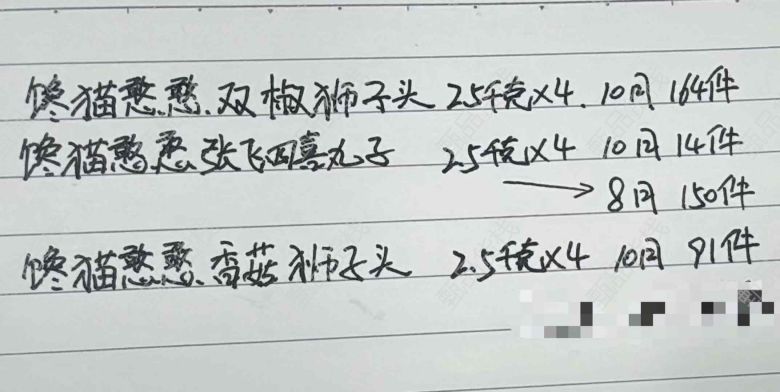 馋猫憨憨.双椒狮子头 2.5千克×4. 10月 164件
馋猫憨憨张飞四喜丸子 2.5千克×4 10月 14件
→ 8月 150件
馋猫憨憨.香菇狮子头 2.5千克×4 10月 91件